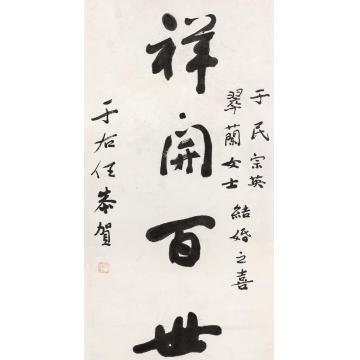 于民宗英
翠蘭女士結婚之喜
祥開百世
于右任恭賀